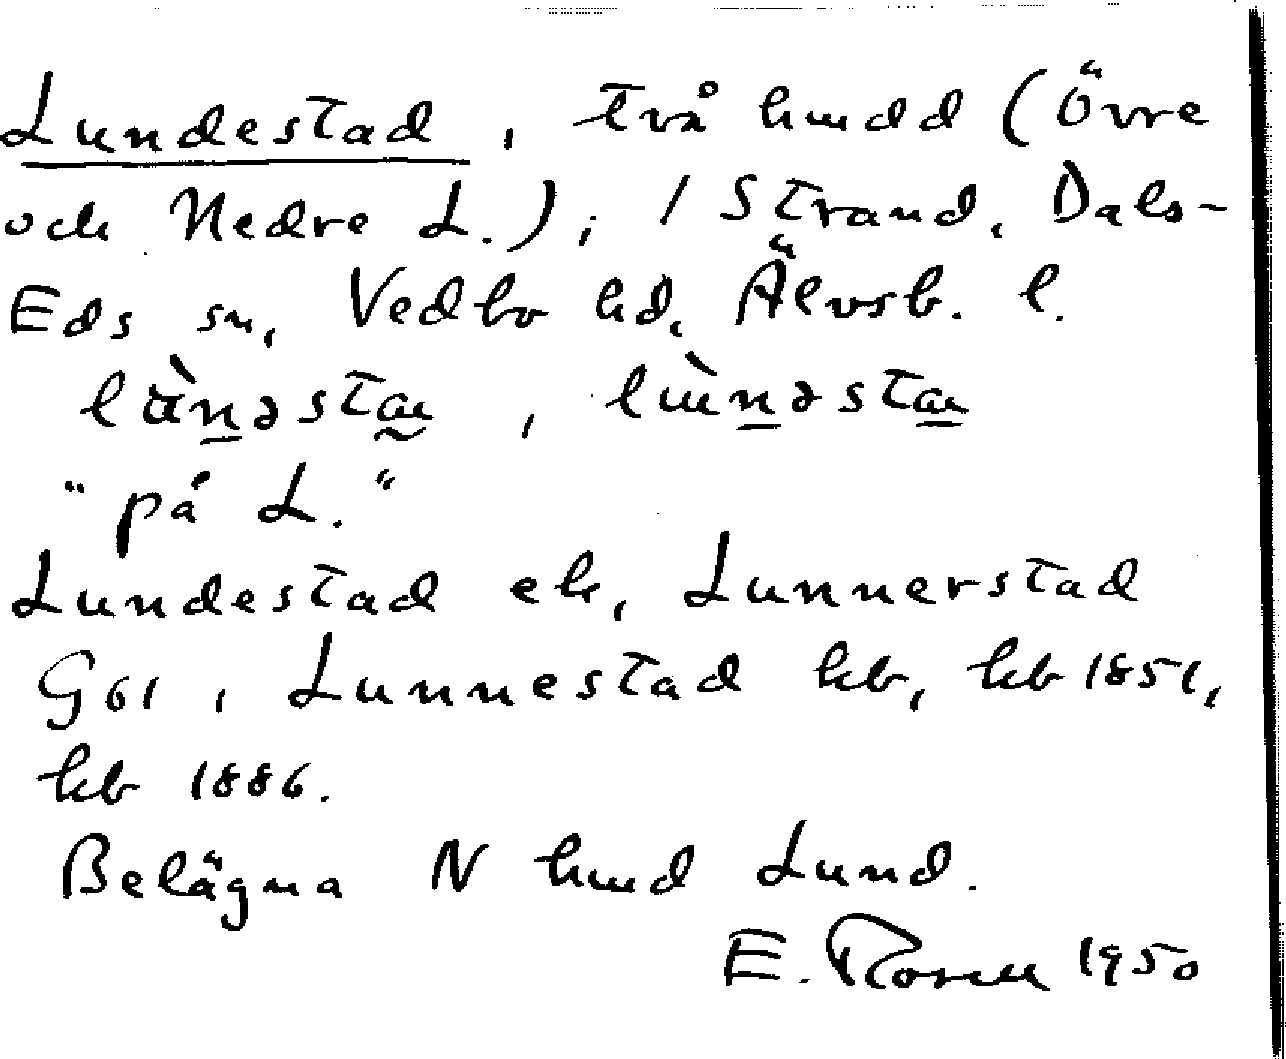 Lundestad, två hmdd (Övre
och Nedre L.), i Strand, Dals-
Eds sn, Vedbo hd, Älvsb. l.
"på L."
Lundestad ek, Lunnerstad
G61, Lunnestad kb, hb 1851,
hb 1886.
Belägna N hmd Lund.
E. Rosell 1950